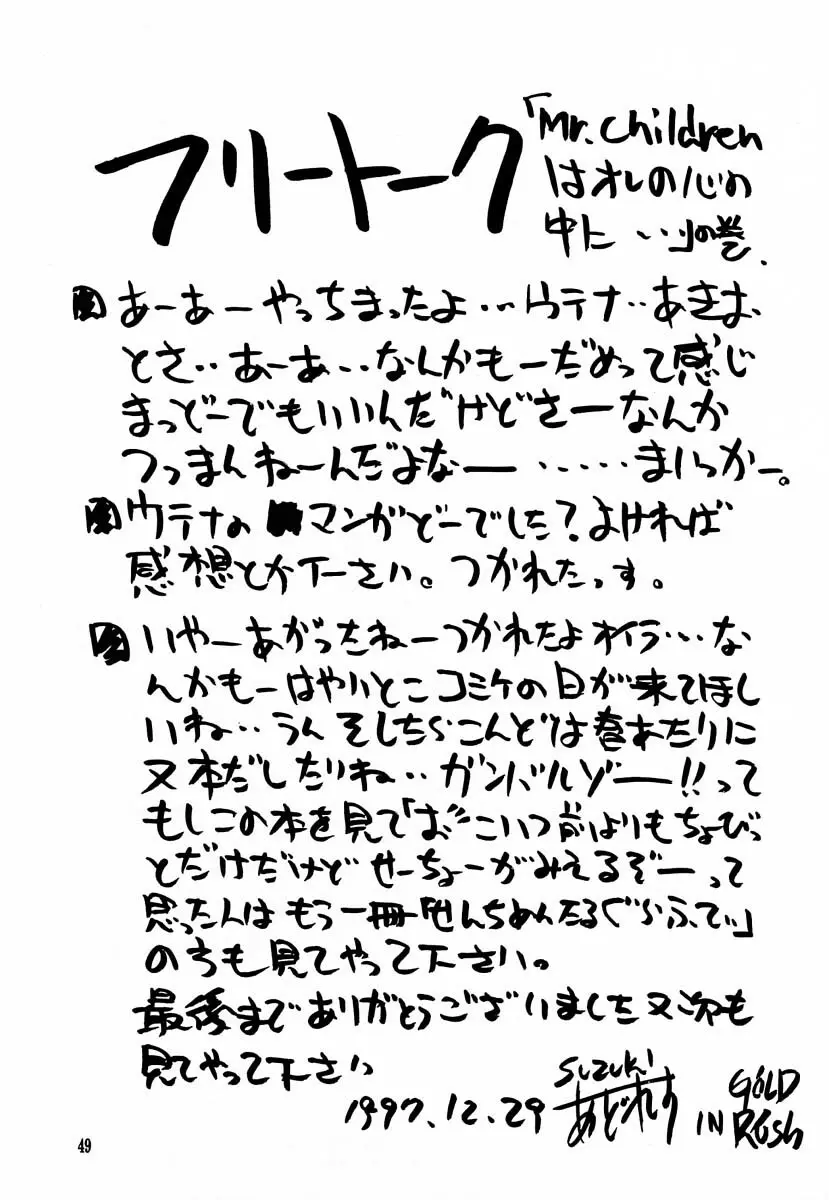 フリートーク
「Mr.Children
はオレの心の
中に・・・」の巻.
あーあーやっちまったよ・・・ウテナ・・あきお
とさ・・あーあ・・・なんかもーだめって感じ
まっどーでもいいんだけどさーなんか
つっまんねーんだよなー・・・・・まいっかー。
ウテナの マンガどーでした?よければ
感想とか下ーさい。つかれたっす。
いやーあがったねーつかれたよオイラ・・・な
んかもーはやいとこコミケの日が来てほし
いね・・うん そしたらこんどは春あたりに
又本だしたいね・・ガンバルゾー!!って
もしこの本を見て「お"こいつ前よりもちょびっ
とだけだけどせーちょーがみえるぞーって
思った人はもう一冊「せんちめんたるぐらふてぃ」
のうも見てやって下さい。
最後までありがとうございました又次も
見てやって下さい
1997.12.29
SUZUKI
あどれす
GOLD
IN RUSH
49